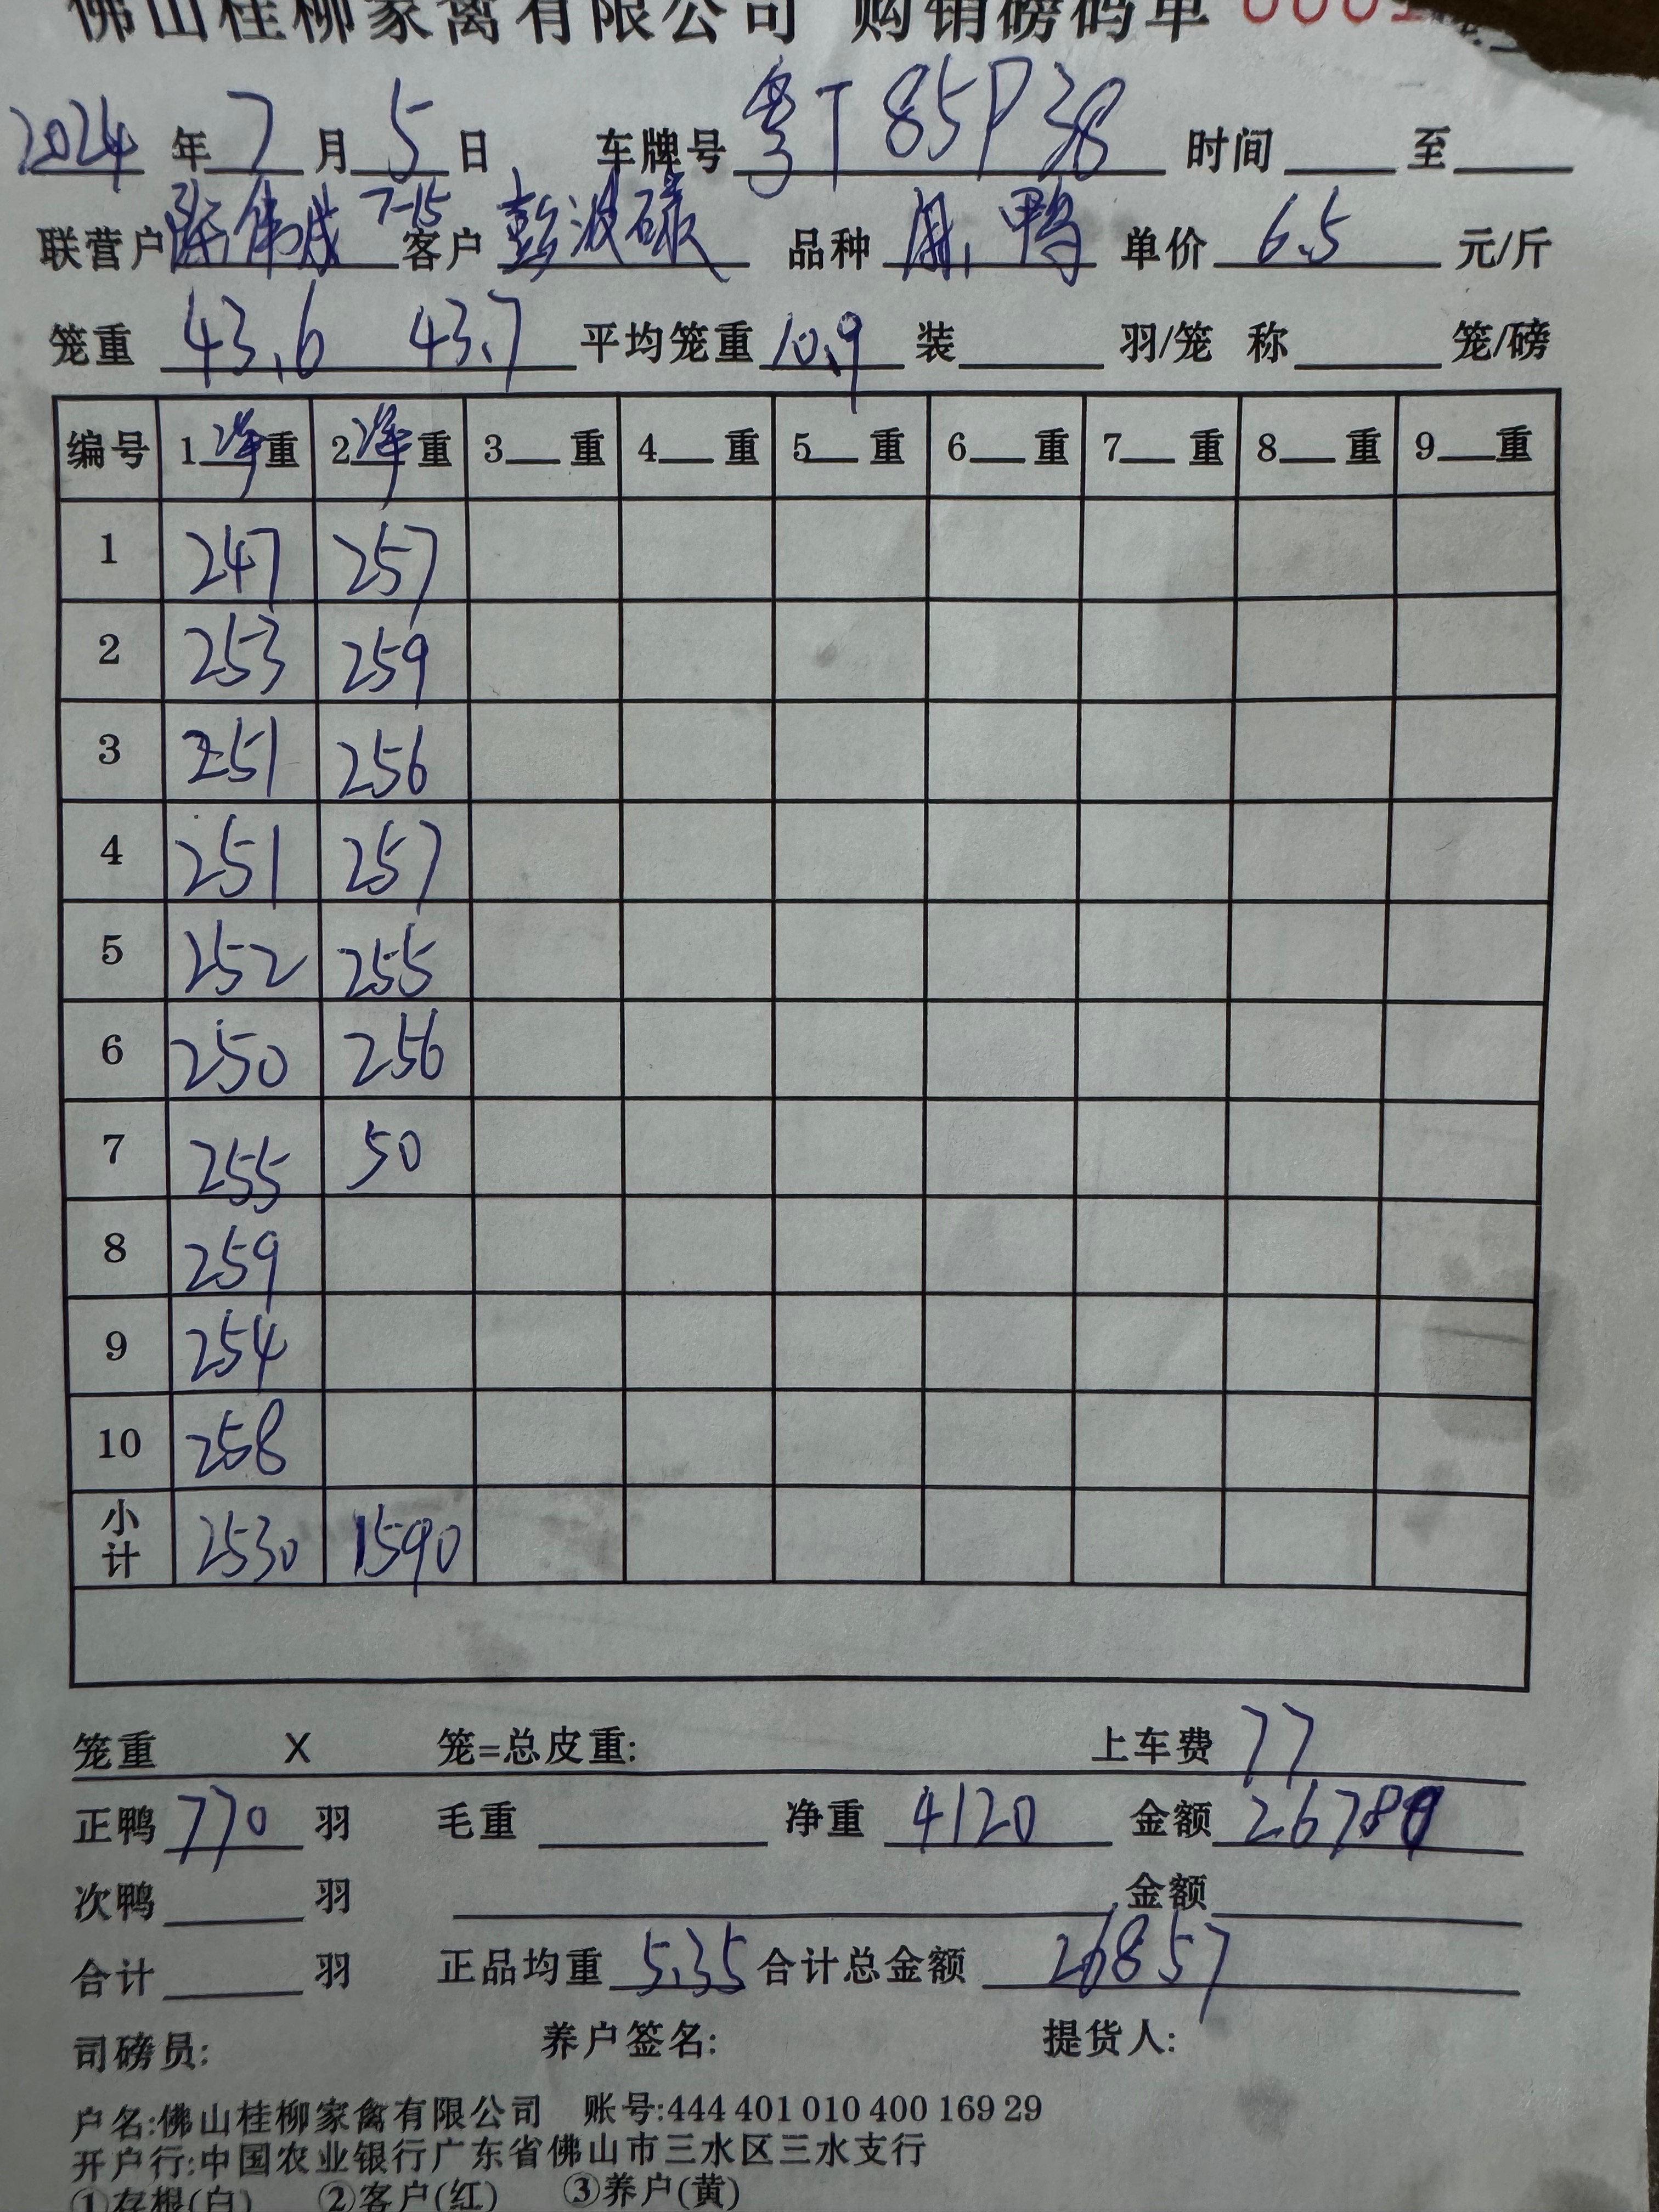 佛山桂柳家禽有限公司 购销磅码单
2024 年 7 月 5 日 车牌号 粤T 85P38 时间 至
联营户 陈伟成 7-15 客户 彭波 品种 鸭 单价 6.5 元/斤
笼重 43.6 43.7 平均笼重 10.9 装 羽/笼 称 笼/磅
编号 1净重 2净重 3 重 4 重 5 重 6 重 7 重 8 重 9 重
1 247 257
2 253 259
3 251 256
4 251 257
5 252 255
6 250 256
7 255 50
8 259
9 254
10 258
小计 2530 1590
笼重 X 笼=总皮重: 上车费 77
正鸭 770 羽 毛重 净重 4120 金额 26780
次鸭 羽 金额
合计 羽 正品均重 5.35 合计总金额 26857
司磅员: 养户签名: 提货人:
户名:佛山桂柳家禽有限公司 账号:444 401 010 400 169 29
开户行:中国农业银行广东省佛山市三水区三水支行
①存根(白) ②客户(红) ③养户(黄)